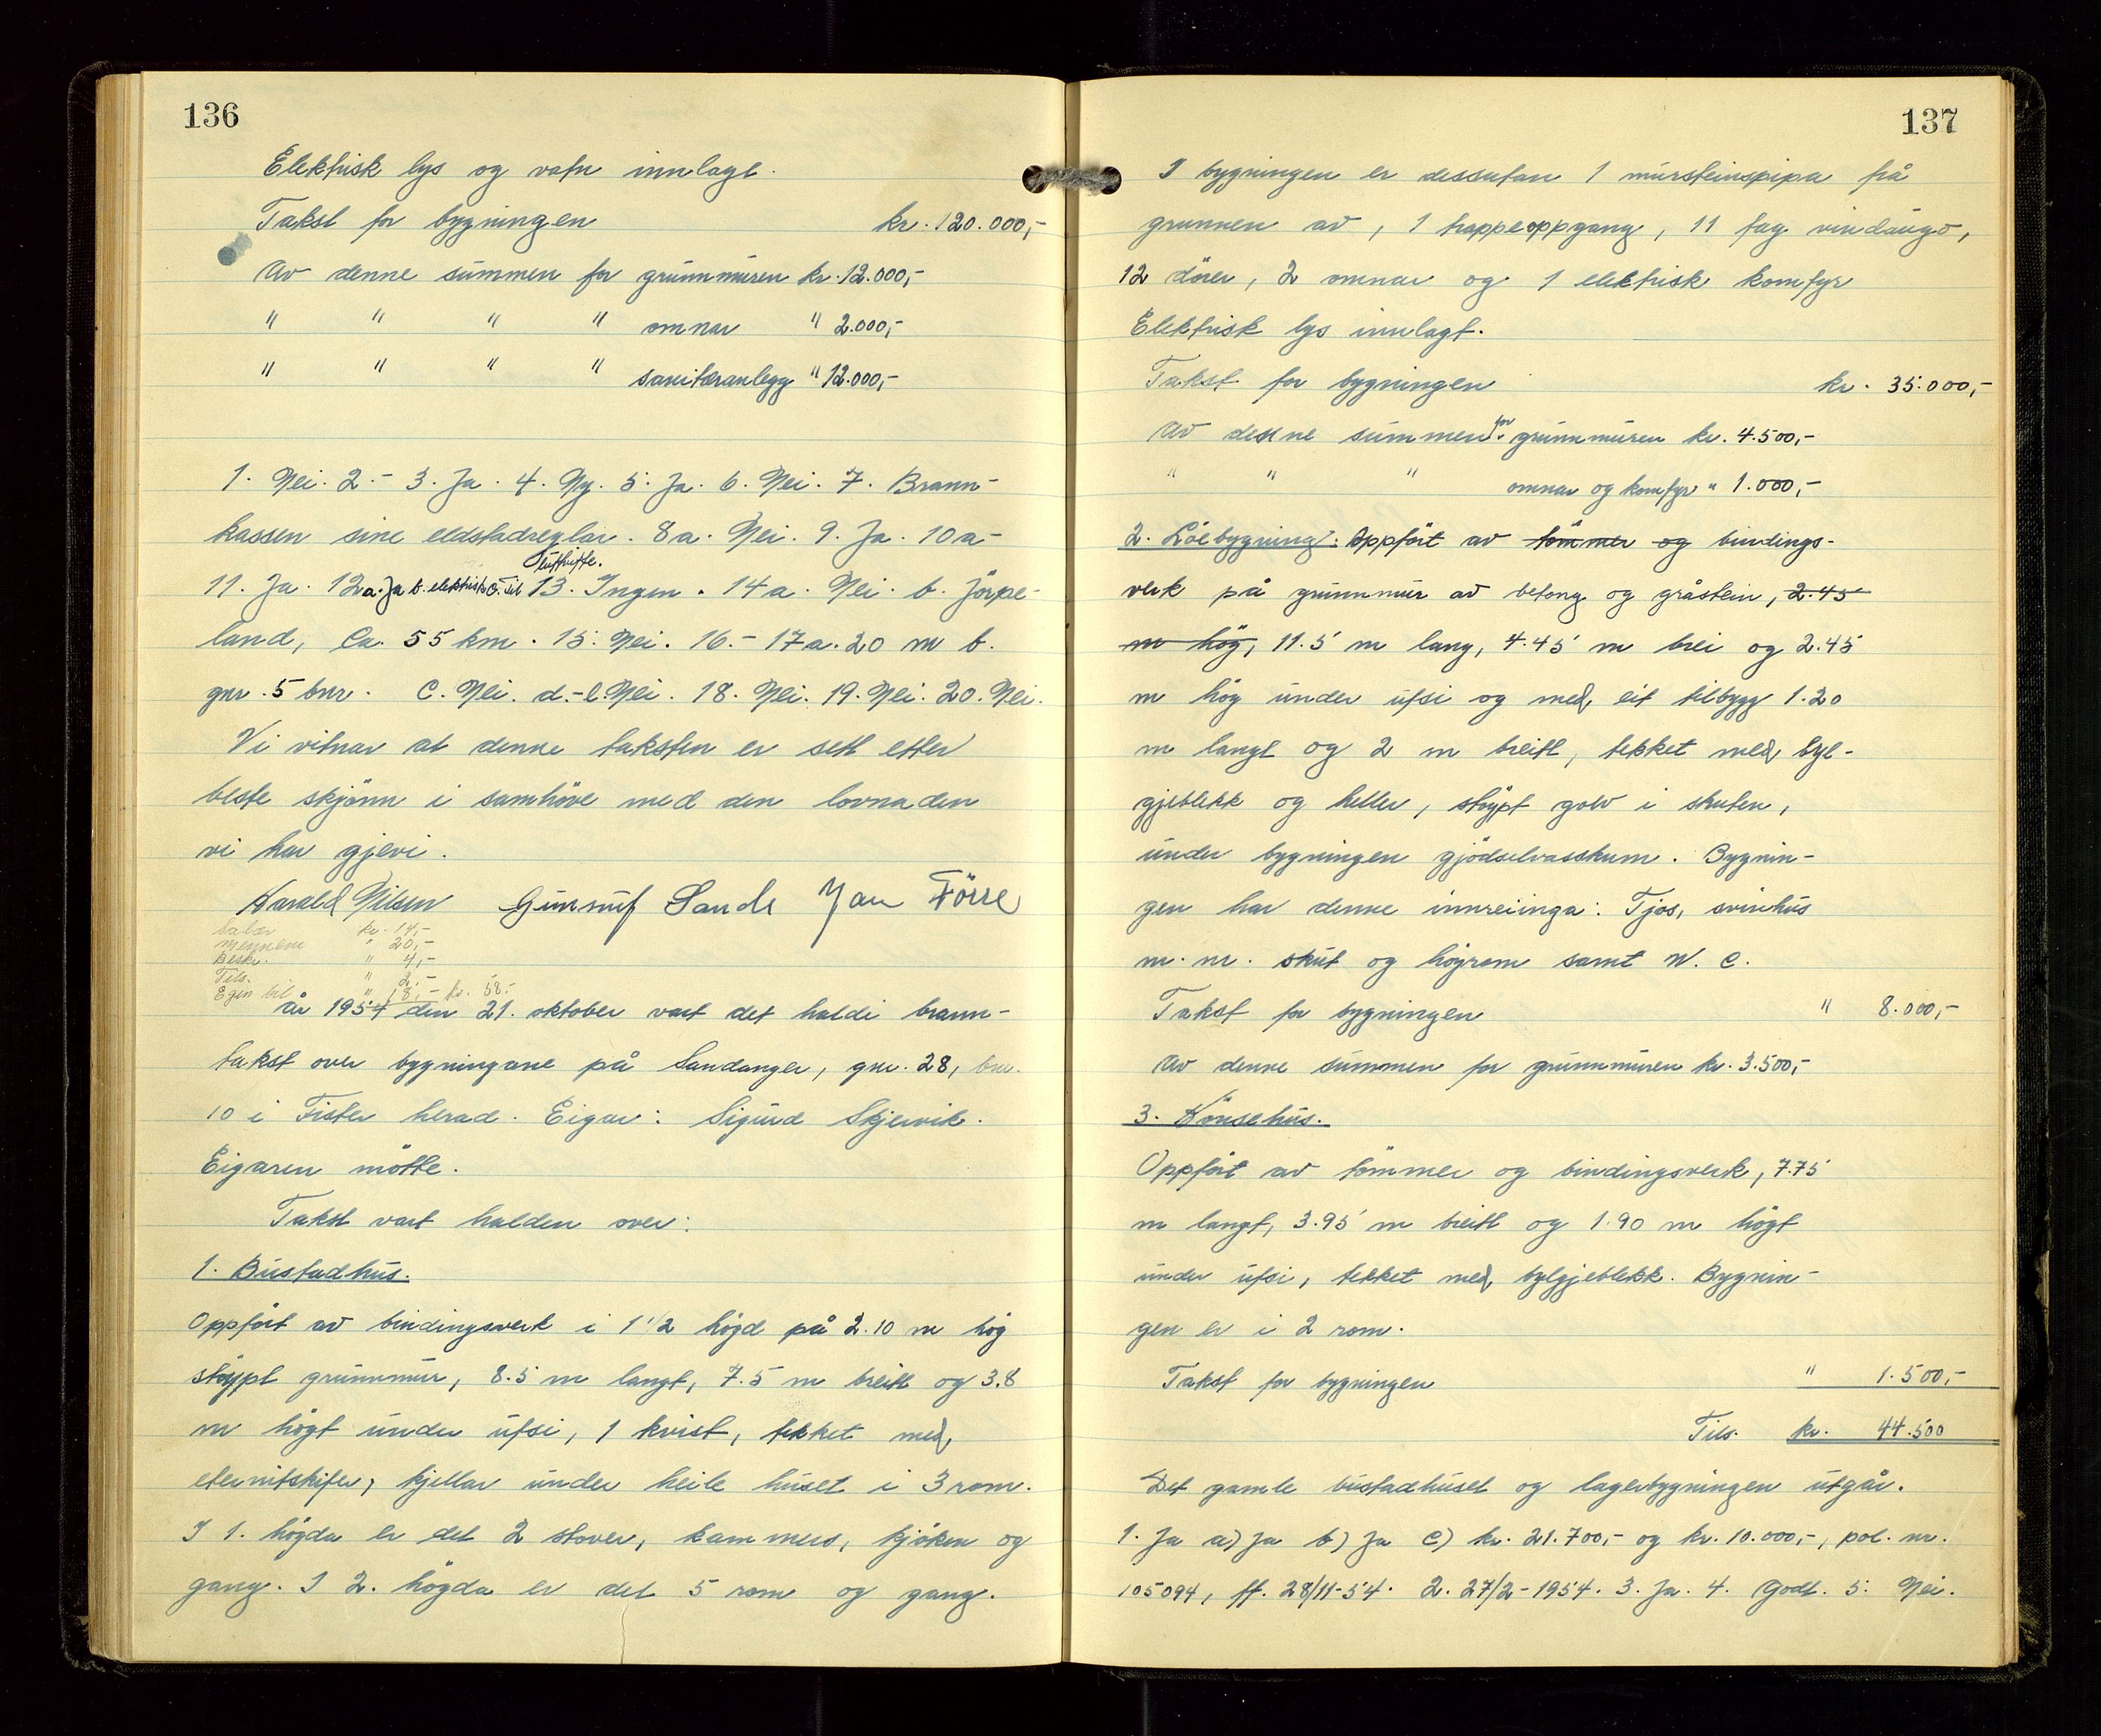 136
Elektrisk lys og vatn innlagt.
Takst for bygningen kr. 120.000,-
Av denne summen for grunnmuren kr. 12.000,-
" " " " omnar " 2.000,-
" " " " sanitæranlegg " 12.000,-
1. Nei. 2.- 3. Ja. 4. Ny. 5. Ja. 6. Nei. 7. Brann-
kassen sine eldstadreglar. 8a. Nei. 9. Ja. 10a-
luftlifte.
11. Ja. 12a. Ja b. elektrisk c. Til 13. Ingen. 14a. Nei. b. Jörpe-
land, Ca. 55 km. 15. Nei. 16.- 17a. 20 m b.
gnr. 5 bnr. c. Nei. d.- e. Nei. 18. Nei. 19. Nei. 20. Nei.
Vi vitnar at denne taksten er sett etter
beste skjönn i samhöve med den lovnaden
vi har gjevi.
Harald Nilsen Gunnulf Sande Jan Förre
Salær kr. 14,-
Mennene " 20,-
Beskr. " 4,-
Tils. " 2.-
Egen bil " 18,- kr. 58.-
År 1954 den 21. oktober vart det haldi brann-
takst over bygningane på Sandanger, gnr. 28, bnr.
10 i Fister herad. Eigar: Sigurd Skjervik.
Eigaren mötte.
Takst vart halden over:
1. Bustadhus.
Oppfört av bindingsverk i 1 1/2 högd på 2.10 m hög
stöypt grunnmur, 8.5 m langt, 7.5 m breitt og 3.8
m högt under ufsi, 1 kvist, tekket med
eternitskifer, kjellar under heile huset i 3 rom.
I 1. högda er det 2 stover, kammers, kjöken og
gang. I 2. högda er det 5 rom og gang.
137
I bygningen er dessutan 1 mursteinspipa frå
grunnen av, 1 trappeoppgang, 11 fag vindaugo,
12 dörer, 2 omnar og 1 elektrisk komfyr
Elektrisk lys innlagt.
Takst for bygningen kr. 35.000,-
Av denne summen for grunnmuren kr. 4.500,-
" " " omnar og komfyr " 1.000,-
2. Löebygning: Oppfört av tömmer og bindings-
verk på grunnmur av betong og gråstein, 2.45
m hög, 11.5 m lang, 4.45 m brei og 2.45
m hög under ufsi og med eit tilbygg 1.20
m langt og 2 m breitt, tekket med byl-
gjeblekk og heller, stöypt golv i skuten,
under bygningen gjödselvasskum. Bygnin-
gen har denne innreiinga: Fjos, svinhus
m.m. skut og höyrom samt W.C.
Takst for bygningen " 8.000,-
Av denne summen for grunnmuren kr. 3.500,-
3. Hönsehus.
Oppfört av tömmer og bindingsverk, 7.75
m langt, 3.95 m breitt og 1.90 m högt
under ufsi, tekket med bylgjeblekk. Bygnin-
gen er i 2 rom.
Takst for bygningen " 1.500,-
Tils. kr. 44.500
Det gamle bustadhuset og lagerbygningen utgår.
1. Ja a) Ja b) Ja c) kr. 21.700,- og kr. 10.000,-, pol. nr.
105094, ff. 28/11-54. 2. 27/2-1954. 3. Ja. 4. Godt. 5. Nei.